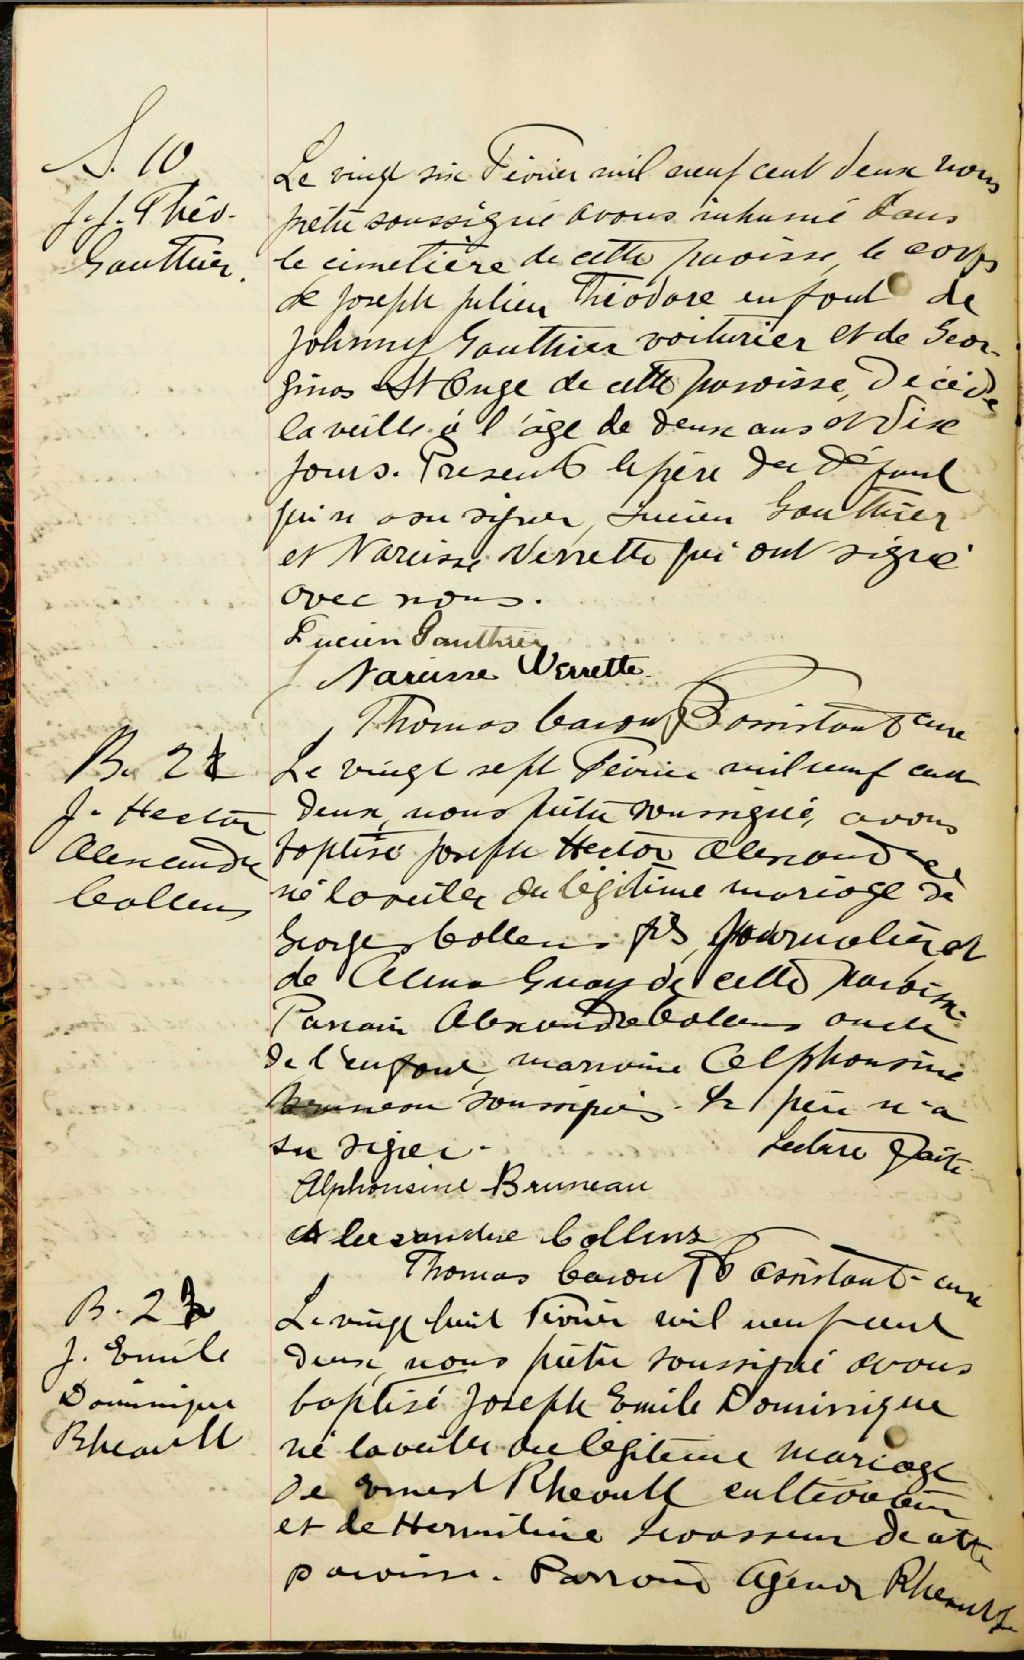 S. 10
J. J. Théo.
Gauthier.
Le vingt six Février mil neuf cent deux nous
prêtre soussigné avons inhumé dans
le cimetière de cette paroisse, le corps
de Joseph Julien Théodore enfant de
Johnny Gauthier voiturier et de Geor-
gina St Onge de cette paroisse, décédé
la veille à l'âge de deux ans et dix
jours. Présents le père du défunt
qui n a su signer, Lucien Gauthier
et Narcisse Verrette qui ont signé
avec nous.
Lucien Gauthier
Narcisse Verrette
Thomas Caron Ptre assistant curé
B. 2
J. Hector
Alexandre
Collens
Le vingt sept Février mil neuf cent
deux, nous prêtre soussigné, avons
baptisé Joseph Hector Alexandre
né la veille du légitime mariage de
Georges Collens fils, journalier, et
de Alma Guay de cette paroisse.
Parrain Alexandre Collens oncle
de l'enfant, marraine Alphonsine
Bruneau soussignés. Le père n'a
su signer. Lecture faite.
Alphonsine Bruneau
Alexandre Collins
Thomas Caron Ptre assistant-curé
B. 2
J. Emile
Dominique
Rheault
Le vingt huit Février mil neuf cent
deux, nous prêtre soussigné avons
baptisé Joseph Emile Dominique
né la veille du légitime mariage
de Ernest Rheault cultivateur
et de Hermiline Levasseur de cette
paroisse. Parrain Agénor Rheault